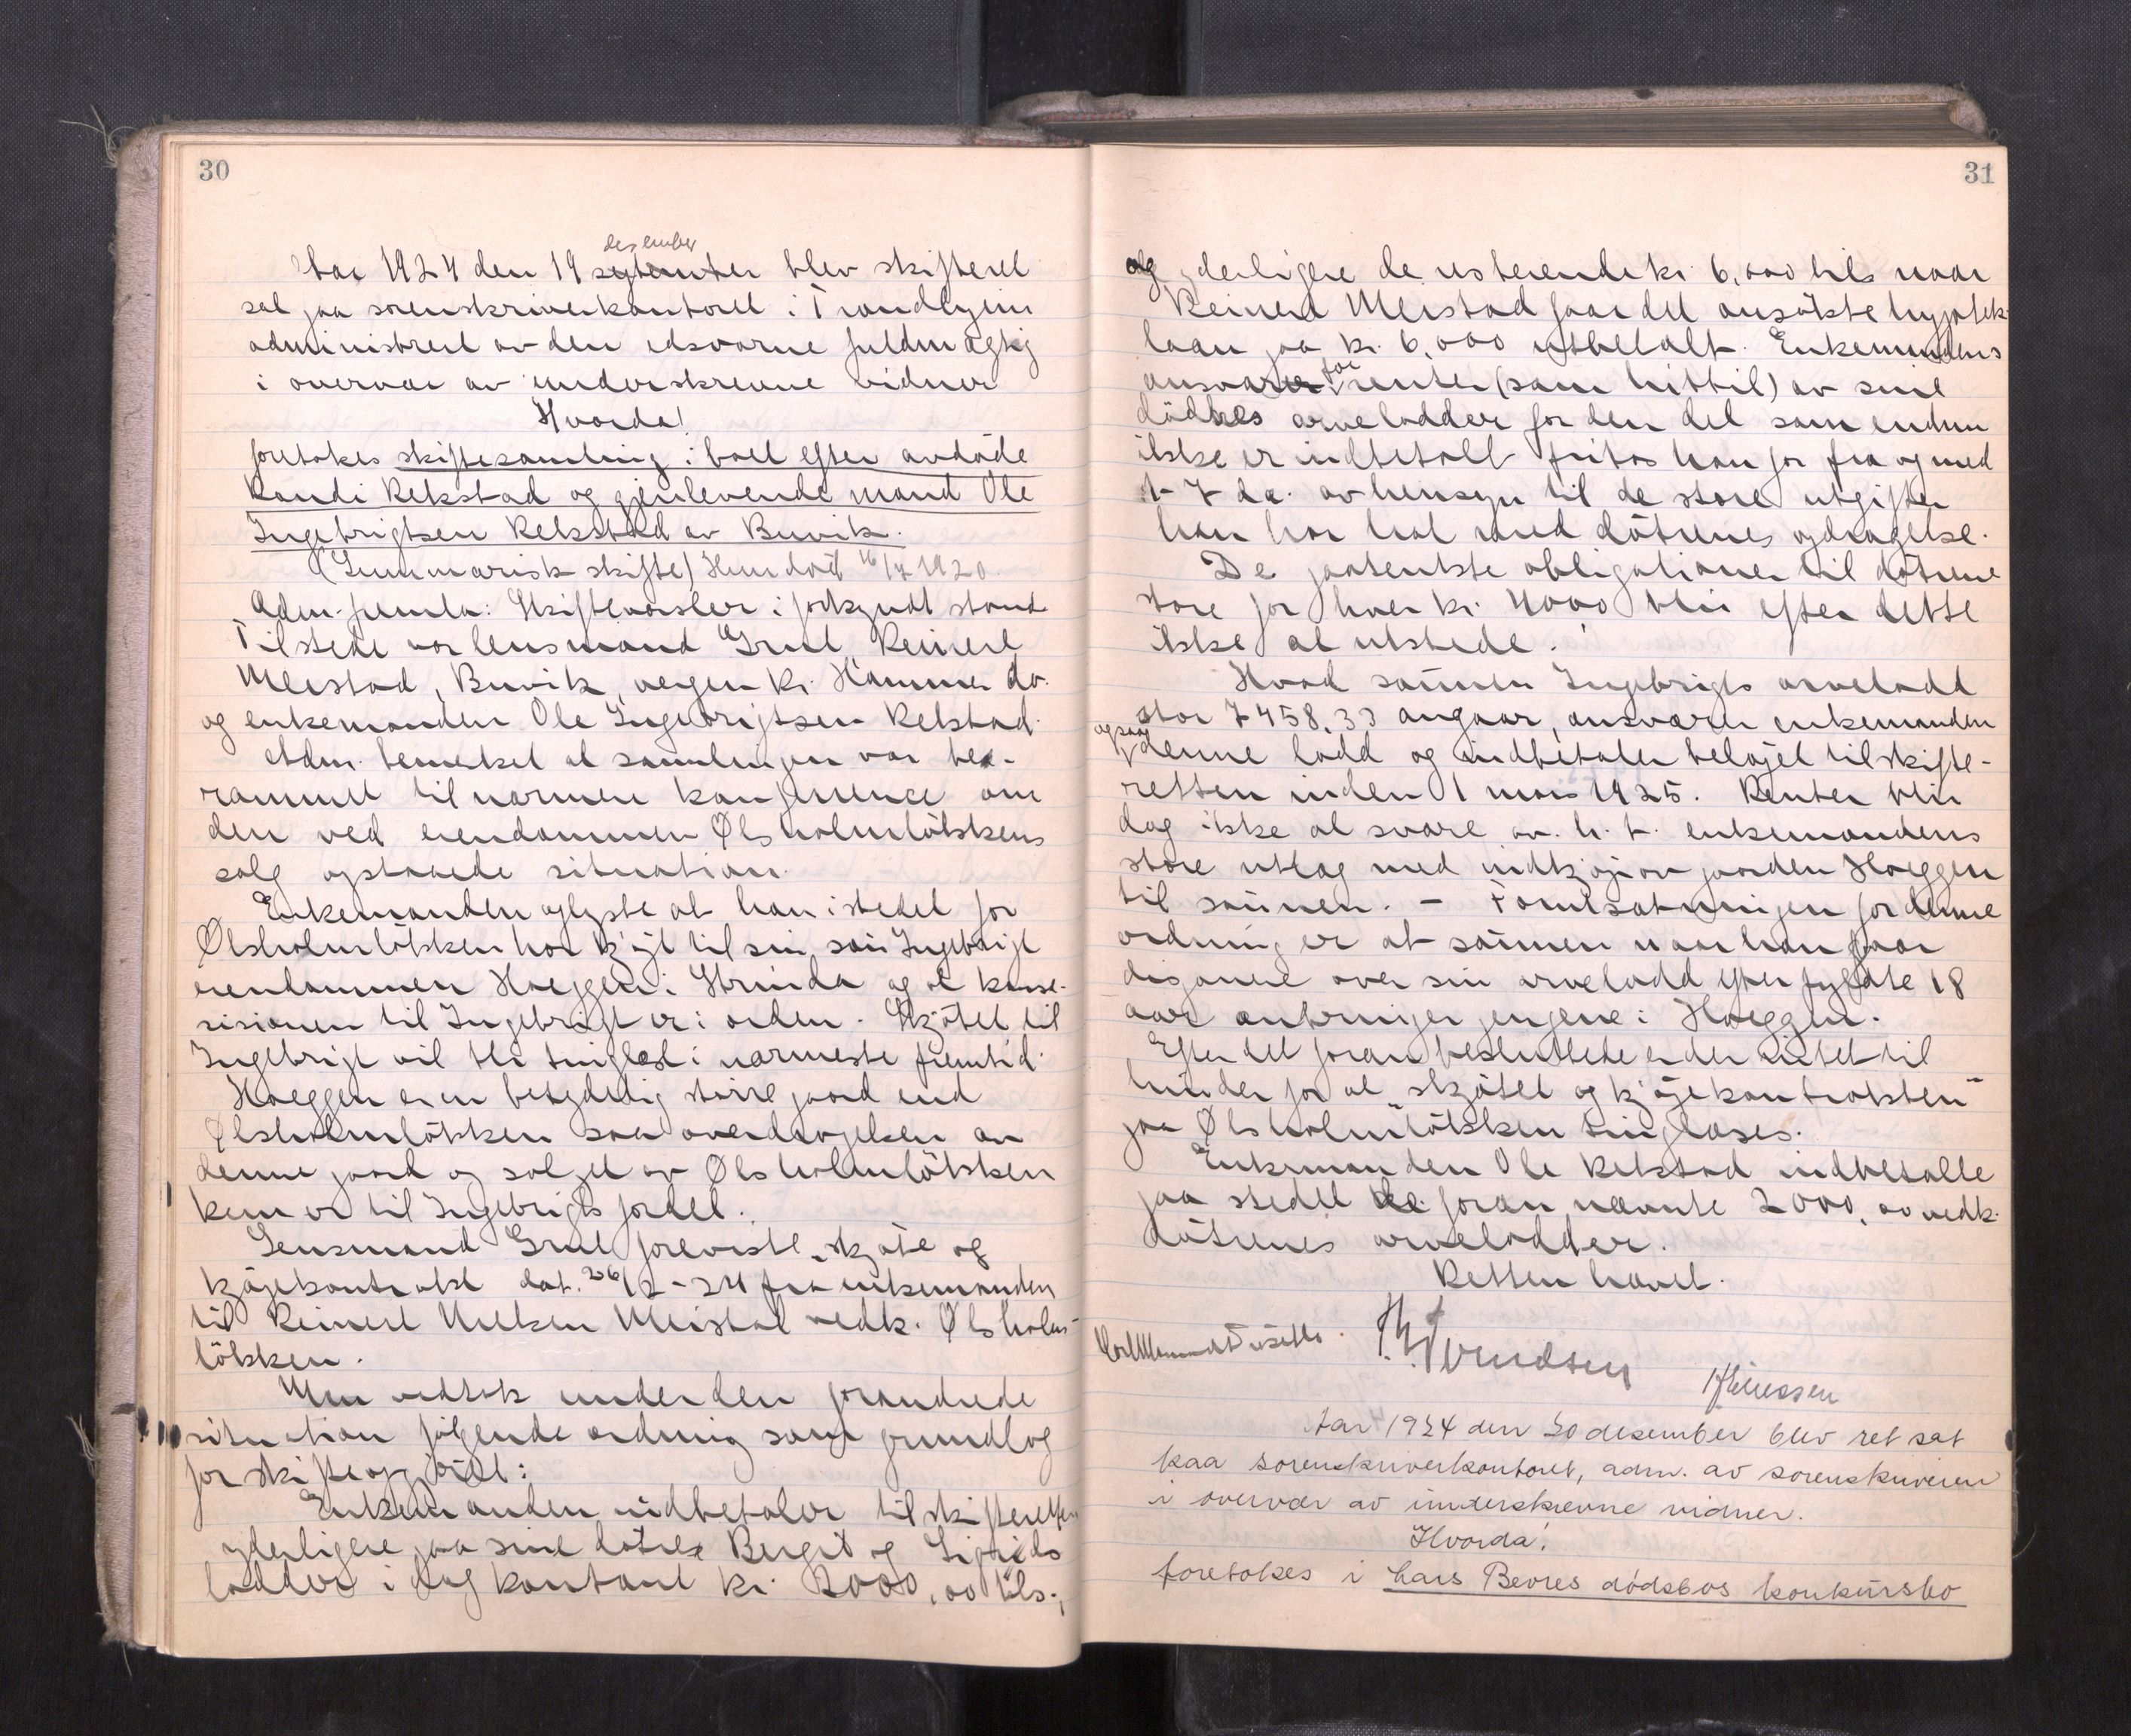 30
desember
Aar 1924 den 19 september blev skifteret
sat paa sorenskriverkontoret i Trondhjem
administrert av den edsvorne fuldmægtig
i overvær av underskrevne vidner
Hvorda!
foretokes skiftesamling i boet efter avdöde
Randi Rekstad og gjenlevende mand Ole
Ingebrigtsen Rekstad av Buvik.
(Summarisk skifte) Hun död 16/7 1920.
Adm. fremla: Skiftevarsler i forkyndt stand
Tilstede var lensmand Grut, Reinert
Meistad, Buvik, vergen Kr. Hammer do.
og enkemanden Ole Ingebrigtsen Rekstad.
Adm. bemerket at samlingen var be-
rammet til nærmere konference om
den ved eiendommen Ølsholmløkkens
salg opstaaede situation.
Enkemanden oplyste at han istedet for
Ølsholmløkken har kjøpt til sin sön Ingebrigt
eiendommen Hoeggen i Strinda og at konse-
sisionen til Ingebrigt er i orden. Skjötet til
Ingebrigt vil bli tinglæst i nærmeste fremtid.
Hoeggen er en betydelig större gaard end
Ølsholmlökken saa overdragelsen av
denne gaard og salget av Ølsholmlökken
kun er til Ingebrigts fordel.
Lensmand Grut foreviste "skjöte og
kjöpekontrakt dat. 26/2-24 fra enkemanden
til Reinert Meistad vedk. Ølsholm-
lökken.
Man vedtok under den forandrede
situation fölgende ordning som grundlag
for skifteopgjöret:
Enkemanden indbetaler til skifteretten
yderligere paa sine dötre Bergit og Sigrids
lodder i dag kontant kr. 2000,00 tils.,
31
og yderligere de resterende kr. 6,000 tils naar
Reinert Meistad faar det ansökte hypotek-
laan paa kr. 6,000 utbetalt. Enkemandens
ansvar for renter (som hittil) av sine
dötres arvelodder for den del som endnu
ikke er indbetalt fritas han for fra og med
1-7 d.a. av hensyn til de store utgifter
han har hat med dötrenes opdragelse.
De paatenkte obligationer til dötrene
store for hver kr. 4000 blir efter dette
ikke at utstede.
Hvad sönnen Ingebrigts arvelodd
stor 7458,33 angaar, ansvarer enkemanden
ogsaa
denne lodd og indbetaler belöpet til skifte-
retten inden 1 mars 1925. Renter blir
dog ikke at svare av h.t. enkemandens
store utlæg med indkjöp av gaarden Hoeggen
til sönnen. - Forutsætningen for denne
ordning er at sönnen naar han faar
disponere over sin arvelodd efter fyldte 18
aar anbringer pengene i Hoeggen.
Efter det foran besluttede er der intet til
hinder for at "skjötet og kjöpekontrakten"
paa Ølsholmlökken tinglæses.
Enkemanden Ole Rekstad indbetalte
paa stedet de foran nævnte 2000,00 vedk.
dötrenes arvelodder.
Retten hævet.
Aar 1924 den 20 desember blev ret sat
paa sorenskriverkontoret, adm. av sorenskriveren
i overvær av underskrevne vidner.
Hvorda!
foretokes i Lars Bevres dödsbos konkursbo